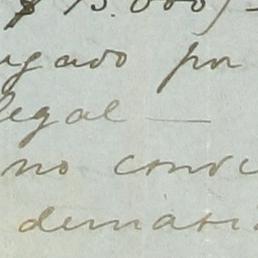 $ 15.000) -
ugado por
legal —
no conve
demasi